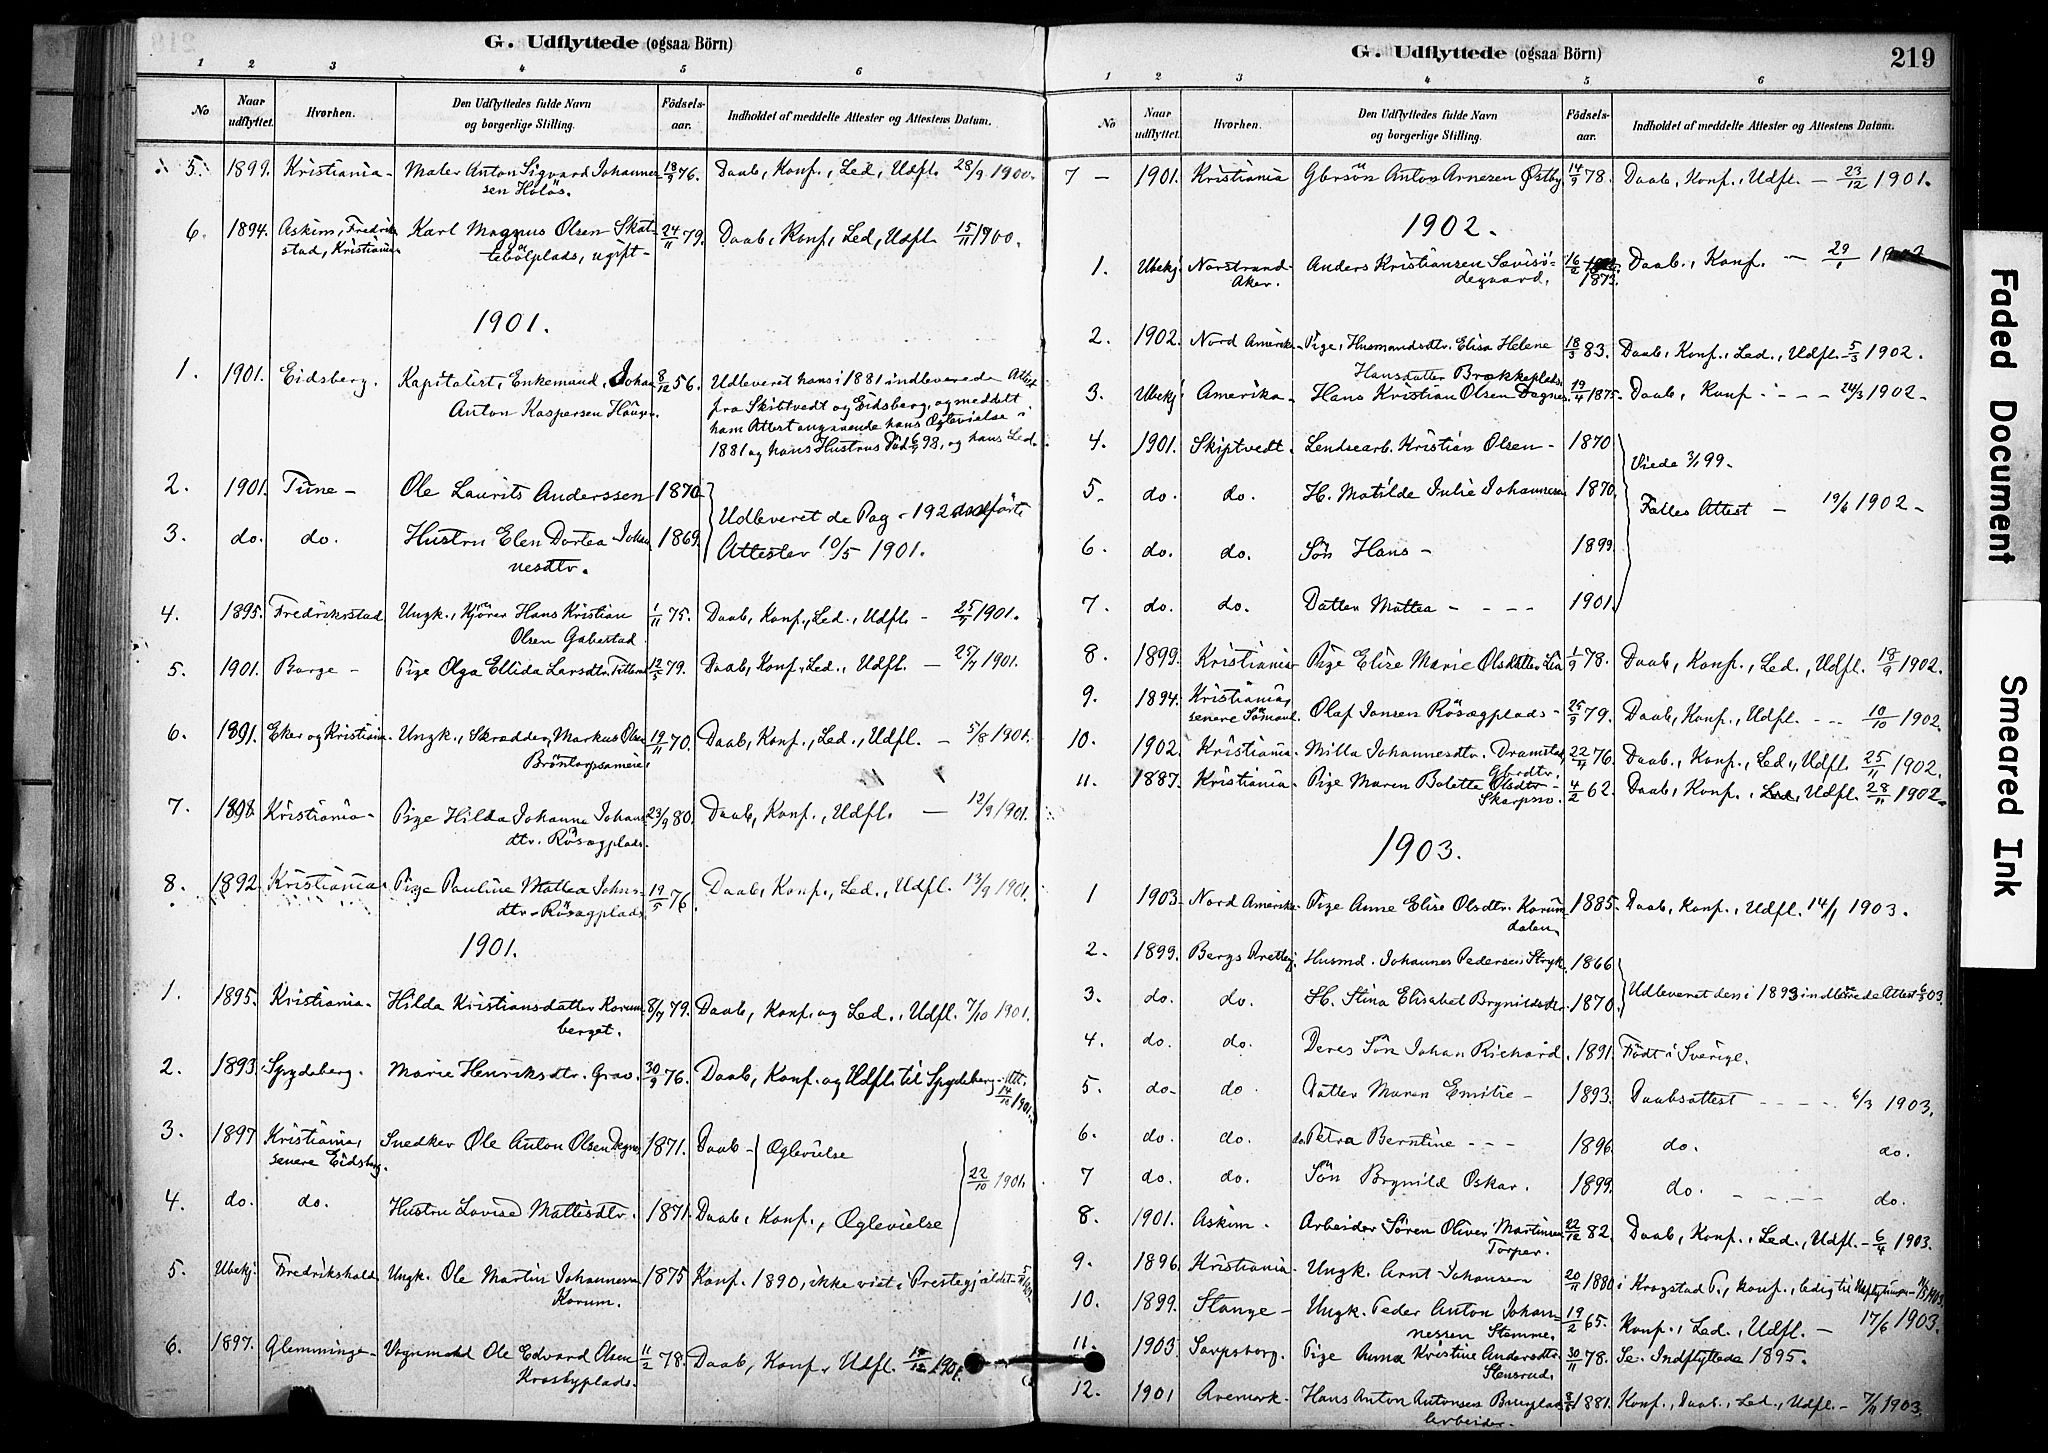 G. Udflyttede (ogsaa Börn)
1 2 3 4 5 6
No Naar udflyttet. Hvorhen. Den Udflyttedes fulde Navn og borgerlige Stilling. Födsels-aar. Indholdet af meddelte Attester og Attestens Datum.
5. 1899. Kristiania - Maler Anton Sigvard Johannes- 18/9 76. Daab, Konf., Led, Udfl. 28/9 1900.
sen Hölös.
6. 1894. Askim, Fredrik- Karl Magnus Olsen Skat- 24/11 79. Daab, Konf., Led, Udfl. 15/11 1900.
stad, Kristiania tebölplads, ugift -
1901.
1. 1901. Eidsberg. Kapitalist, Enkemand, Johan 8/12 56. Udleveret hans i 1881 indleverede Attest
Anton Kaspersen Haugen. fra Skibtvedt og Eidsberg, og meddelt
ham Attest angaaende hans Ægtevielse i
1881 og hans Hustrus Död 98, og hans Led.
2. 1901. Tune - Ole Laurits Anderssen 1870
Udleveret de Pag. 192 anförte
3. do. do. Hustru Elen Dortea Johan- 1869. Attester 10/5 1901.
nesdtr.
4. 1895. Fredrikstad Ungk., Kjörer Hans Kristian 1/11 75. Daab, Konf., Led., Udfl. - 25/7 1901.
Olsen Gabestad
5. 1901. Borge - Pige Olga Ellida Larsdtr. 12/5 79. Daab, Konf., Led., Udfl. - 25/7 1901.
6. 1891. Eker og Kristiania. Ungk., Skrædder, Markus Olsen 19/11 70. Daab, Konf., Led., Udfl. - 5/8 1901.
Bröntorpsameie.
7. 1898. Kristiania - Pige Hilda Johanne Johans- 23/9 80. Daab, Konf., Udfl. - 12/9 1901.
dtr. Rösægplads.
8. 1892. Kristiania. Pige Pauline Mattea Johns- 19/5 76. Daab, Konf., Led., Udfl. 13/9 1901.
dtr. Rösægplads
1901.
1. 1895. Kristiania. Hilda Kristiansdatter Korum- 8/7 79. Daab, Konf. og Led., Udfl. 7/10 1901.
berget.
2. 1893. Spydeberg. Marie Henriksdtr. Grav. 30/9 76. Daab, Konf. og Udfl. til Spydeberg - Att.
14/10 1901.
3. 1897 Kristiania, Snedker Ole Anton Olsen Degnes 1871. Daab - Ægtevielse
senere Eidsberg. 22/10 1901.
4. do. do. Hustru Lovise Mattisdtr. 1871. Daab, Konf., Ægtevielse
5. Ubekj. Fredrikshald Ungk. Ole Martin Johannesen 1875 Konf. 1890, ikke viet i Prestegjældet
Korum.
6. 1897. Glemminge - Vognmand Ole Edvard Olsen 11/2 78. Daab, Konf., Udfl. 19/12 1901.
Krosbyplads.
G. Udflyttede (ogsaa Börn)
219
1 2 3 4 5 6
No Naar udflyttet. Hvorhen. Den Udflyttedes fulde Navn og borgerlige Stilling. Födsels-aar. Indholdet af meddelte Attester og Attestens Datum.
7 - 1901. Kristiania Gbrsön Anton Arnesen Østby 14/9 78. Daab, Konf., Udfl. - 23/12 1901.
1902.
1. Ubekj. Norstrand Anders Kristiansen Sævisö- 16/2 Daab., Konf. - 29/1
Aker. degaard. 1873.
2. 1902. Nord Amerika - Pige, Husmandsdtr. Elisa Helene 18/3 83. Daab, Konf., Led., Udfl. 5/3 1902.
Hansdatter Brækkeplads
3. Ubekj. Amerika - Hans Kristian Olsen Degnes. 19/4 1875. Daab, Konf. - - - 24/3 1902 -
4. 1901. Skiptvedt. Lendsearb. Kristian Olsen - 1870
Viede 3/1 99.
5. do. do. H. Matilde Julie Johannesen 1870.
Fælles Attest - 19/6 1902 -
6. do. do. Sön Hans - 1899.
7. do. do. Datter Mattea - - - - 1901.
8. 1899. Kristiania - Pige Elise Marie Olsdatter Lia 1/9 78. Daab, Konf., Led., Udfl. 18/9 1902.
9. 1894. Kristiania,
senere Sömand. Olaf Jansen Rösægplads - 25/9 79. Daab, Konf., Udfl. - - 10/10 1902.
10. 1902. Kristiania. Milla Johannesdtr. Dramstad 22/11 76. Daab., Konf., Led., Udfl. 25/11 1902.
Gbrdtr.
11. 1887. Kristiania. Pige Maren Bolette Olsdtr - 4/2 62. Daab, Konf., Led, Udfl. 28/11 1902.
Skarpsno.
1903.
1 1903. Nord Amerika. Pige Anne Elise Olsdtr. Korum- 1885. Daab, Konf., Udfl. 14/1 1903.
dalen.
2. 1899. Bergs Prestegj. Husmd. Johannes Pedersen Stryk. 1866
Udleveret den i 1893 indleverede Attest 6/3 03.
3. do. do. H. Stina Elisabet Brynildsdtr. 1870.
4. do. do. Deres Sön Johan Richard. 1891. Födt i Sverige.
5. do. do. Datter Maren Emilie - 1893. Daabsattest - - - - 6/3 1903.
6. do. do. do. Petra Berntine - - - 1896. do. do.
7 do. do. Sön Brynild Oskar. 1899. do. - - - - do.
8. 1901. Askim. Arbeider Sören Oliver Martinsen 22/12 82. Daab, Konf., Led., Udfl. - 6/4 1903.
Torper.
9. 1896. Kristiania - Ungk. Arnt Johansen 20/11 1880. i Krogstad P., konf., ledig til Udflytningen
10. 1899. Stange - Ungk. Peder Anton Johan- 19/2 65. Konf., Led., Udfl. - 17/6 1903.
nessen Stamme.
11. 1903 Sarpsborg. Pige Anna Kristine Andersdtr. 30/11 78. Se Indflyttede 1895.
Stensrud.
12. 1901 Aremark. Hans Anton Antonsen 1881. Konf., Daab., Led., Udfl. - 7/11 1903.
Arbeider.
Faded Document
Smeared Ink